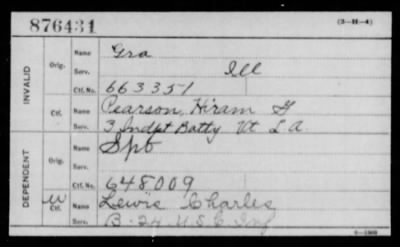 876431 (3-H-4)
INVALID
Orig.
Name Gra
Serv. Ill
Ctf. No. 663351
Ctf.
Name Pearson, Hiram G
Serv. 3 Indpt Batty Vt L A
DEPENDENT
Orig.
Name Spb
Serv.
Ctf. No. 648009
W Ctf.
Name Lewis Charles
Serv. B. 24 U.S.C Inf